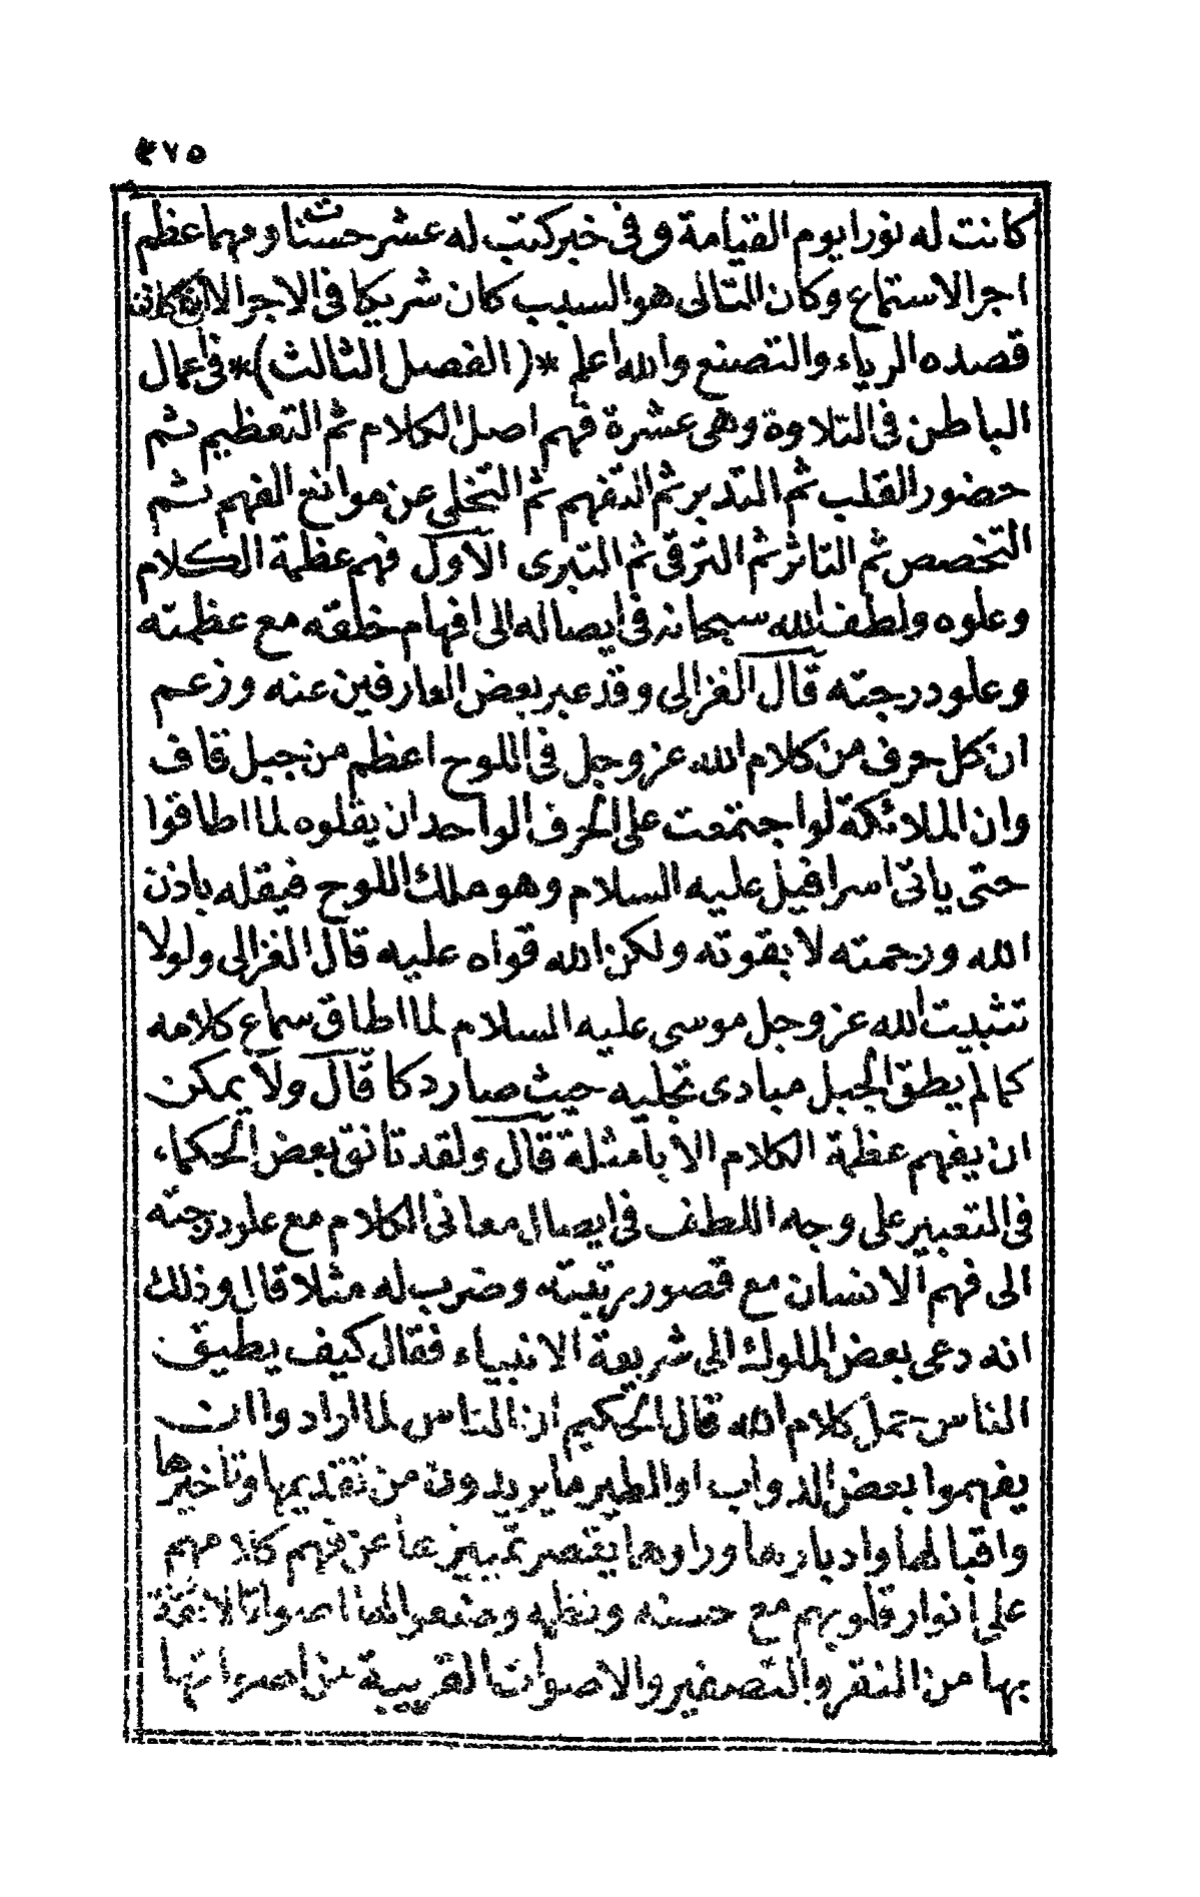 ٣٧٥
كانت له نورا يوم القيامة وفى خبر كتب له عشر حسنات ومهما عظم
اجر الاستماع وكان التالى هو السبب كان شريكا فى الاجر الا ان كانت
قصده الرياء والتصنع والله اعلم *( الفصل الثالث )* فى أعمال
الباطن فى التلاوة وهى عشرة فهم اصل الكلام ثم التعظيم ثم
حضور القلب ثم التدبر ثم التفهم ثم التخلى عن موانع الفهم ثم
التخصص ثم التاثر ثم الترقى ثم التبرى الاول فهم عظمة الكلام
وعلوه ولطف الله سبحانه فى ايصاله الى افهام خلقه مع عظمته
وعلو درجته قال الغزالى وقد عبر بعض العارفين عنه وزعم
ان كل حرف من كلام الله عز وجل فى اللوح اعظم من جبل قاف
وان الملائكة لو اجتمعت على الحرف الواحد ان يقلوه لما اطاقوا
حتى ياتى اسرافيل عليه السلام وهو ملك اللوح فيقله باذن
الله ورحمته لا بقوته ولكن الله قواه عليه قال الغزالى ولولا
تثبيت الله عز وجل موسى عليه السلام لما اطاق سماع كلامه
كما لم يطق الجبل مبادى تجليه حيث صار دكا قال ولا يمكن
ان يفهم عظمة الكلام الا بامثلة قال ولقد تانق بعض الحكماء
فى التعبير على وجه اللطف فى ايصال معانى الكلام مع علو درجته
الى فهم الانسان مع قصور رتبته وضرب له مثلا قال وذلك
انه دعى بعض الملوك الى شريعة الانبياء فقال كيف يطيق
الناس حمل كلام الله قال الحكيم ان الناس لما ارادوا ان
يفهموا بعض الدواب او الطير ما يريدون من تقديمها وتأخيرها
واقبالها وادبارها وراوها يقصر تمييزها عن فهم كلامهم
على انوار قلوبهم مع حسنه ونظمه وضعوا لها اصواتا لائقة
بها من النقر والتصفير والاصوات القريبة من اصواتها